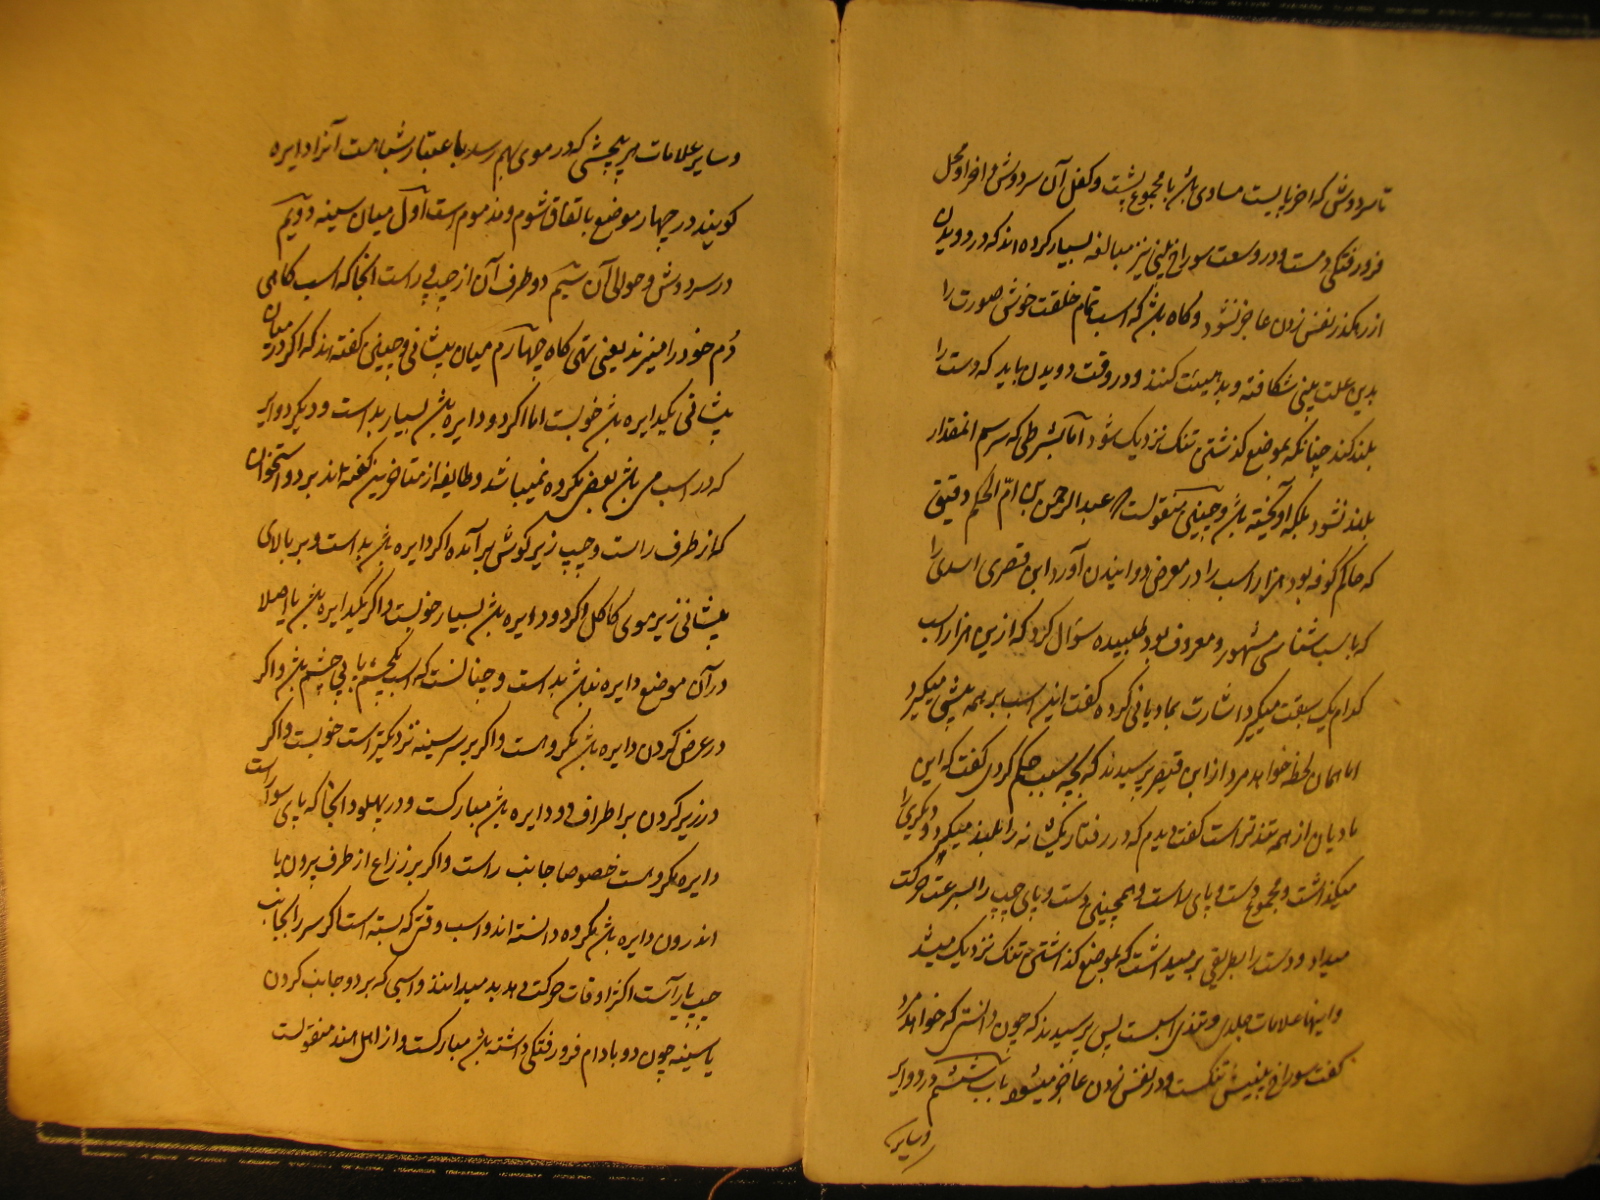 تا سردوش که اخر یالیست مساوی باشد با مجموع پشت و کفل آن سردوش تا اخر او محل
فرورفتگی دست و در وسعت سوراخ بینی نیز مبالغه بسیار کرده اند که در دویدن
از رهکذر نفس زدن عاجز نشود و کاه باشد که اسب تمام خلقت خوش صورت را
بدین علت بینی شکافته و بد هیئت کنند و در وقت دویدن باید که دست را
بلند کند چنانکه بموضع کذشتن تنک نزدیک شود اما بشرطی که سر سم انمقدار
بلند نشود بلکه آویخته باشد و چنین منقولست که عبدالرحمن بن ام الحکم دقیق
که حاکم کوفه بود هزار اسب را در معرض دوانیدن آورد ابن قیصری اسدی را
که باسب شناسی مشهور و معروف بود طلبیده سؤال کرد که ازین هزار اسب
کدام یک سبقت میکیرد اشارت بمادیانی کرده کفت این اسب بر همه پیشی میکیرد
اما همان لحظه خواهد مرد از ابن قیصر پرسیدند که بچه سبب حکم کردی کفت که این
مادیان از همه تندتر است کفت دیدم که در رفتار یک شانه را بلند میکرد و دیکری را
میکذاشت و مجموع دست و پای راست و همچنین دست و پای چپ را بسرعت حرکت
میداد و دست را بطریقی برمیداشت که بموضع کذاشتن تنک نزدیک میشد
و اینها علامات جلدی و تندی اسبست پس پرسیدند که چون دانستی که خواهد مرد
کفت سوراخ بینیش تنکست و در نفس زدن عاجز میشود باب ششم در دوایر
و سایر
و سایر علامات هر پیچشی که در موی بهم رسد باعتبار شباهت آنرا دایره
کویند در چهار موضع باتفاق شوم و مذموم است اول میان سینه دویم
در سردوش و حوالی آن سیم دو طرف آن از چپ و راست انجا که اسب کاهی
دم خود را میزند یعنی تهی کاه چهارم میان پیشانی و چنین کفته اند که اکر در میان
پیشانی یکدایره باشد خوبست اما اکر دو دایره باشد بسیار بد است و دیکر دوایر
که در اسب می باشد بعضی مکروه نمیباشد و طایفه از متاخرین کفته اند بر دو استخوان
که از طرف راست و چپ زیر کوش برآمده اکر دایره باشد بد است و بر بالای
پیشانی زیر موی کاکل اکر دو دایره باشد بسیار خوبست و اکر یکدایره باشد یا اصلا
در آن موضع دایره نباشد بد است و چنانست که اسب یکچشم یا بی چشم باشد و اکر
در عرض کردن دایره باشد مکروهست و اکر بر سر سینه نزدیکتر است خوبست و اکر
در زیر کردن بر اطراف او دو دایره باشد مبارکست و در پهلو در انجا که پای سوار است
دایره مکروهست خصوصا جانب راست و اکر بر ذراع از طرف بیرون یا
اندرون دایره باشد مکروه دانسته اند و اسب وقتی که بسته است اکر سر را بجانب
چپ یا راست اکثر اوقات حرکت دهد بد میدانند و اسبی که بر دو جانب کردن
یا سینه چون دو بادام فرورفتکی داشته باشد مبارکست و از اهل هند منقولست